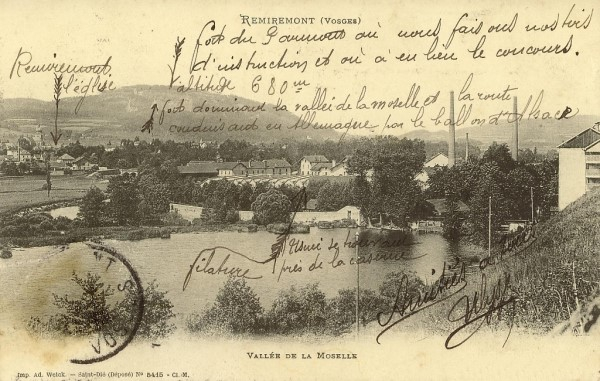 REMIREMONT (VOSGES)
fort du Parmont où nous faisons nos tirs
d'instruction et où a eu lieu le concours.
altitude 680m
Remiremont
l'église
fort dominant la vallée de la moselle et la route
conduisant en Allemagne par le ballon d'Alsace
Usine de
filature près de la caserne
Amitiés
VOSGES
VALLÉE DE LA MOSELLE
Imp. Ad. Weick. — Saint-Dié (Déposé) No 5415 - Cl. M.